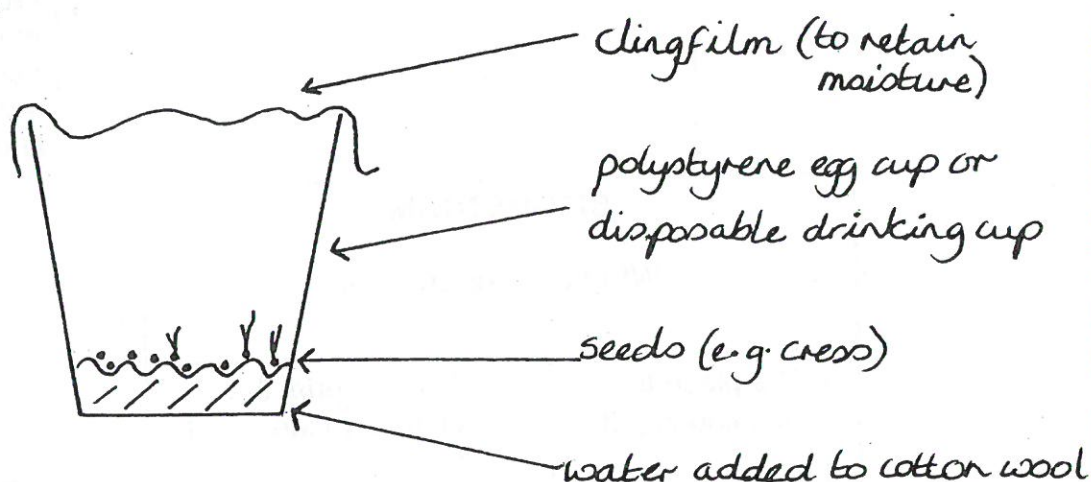 clingfilm (to retain
moisture)
polystyrene egg cup or
disposable drinking cup
seeds (e.g. cress)
water added to cotton wool